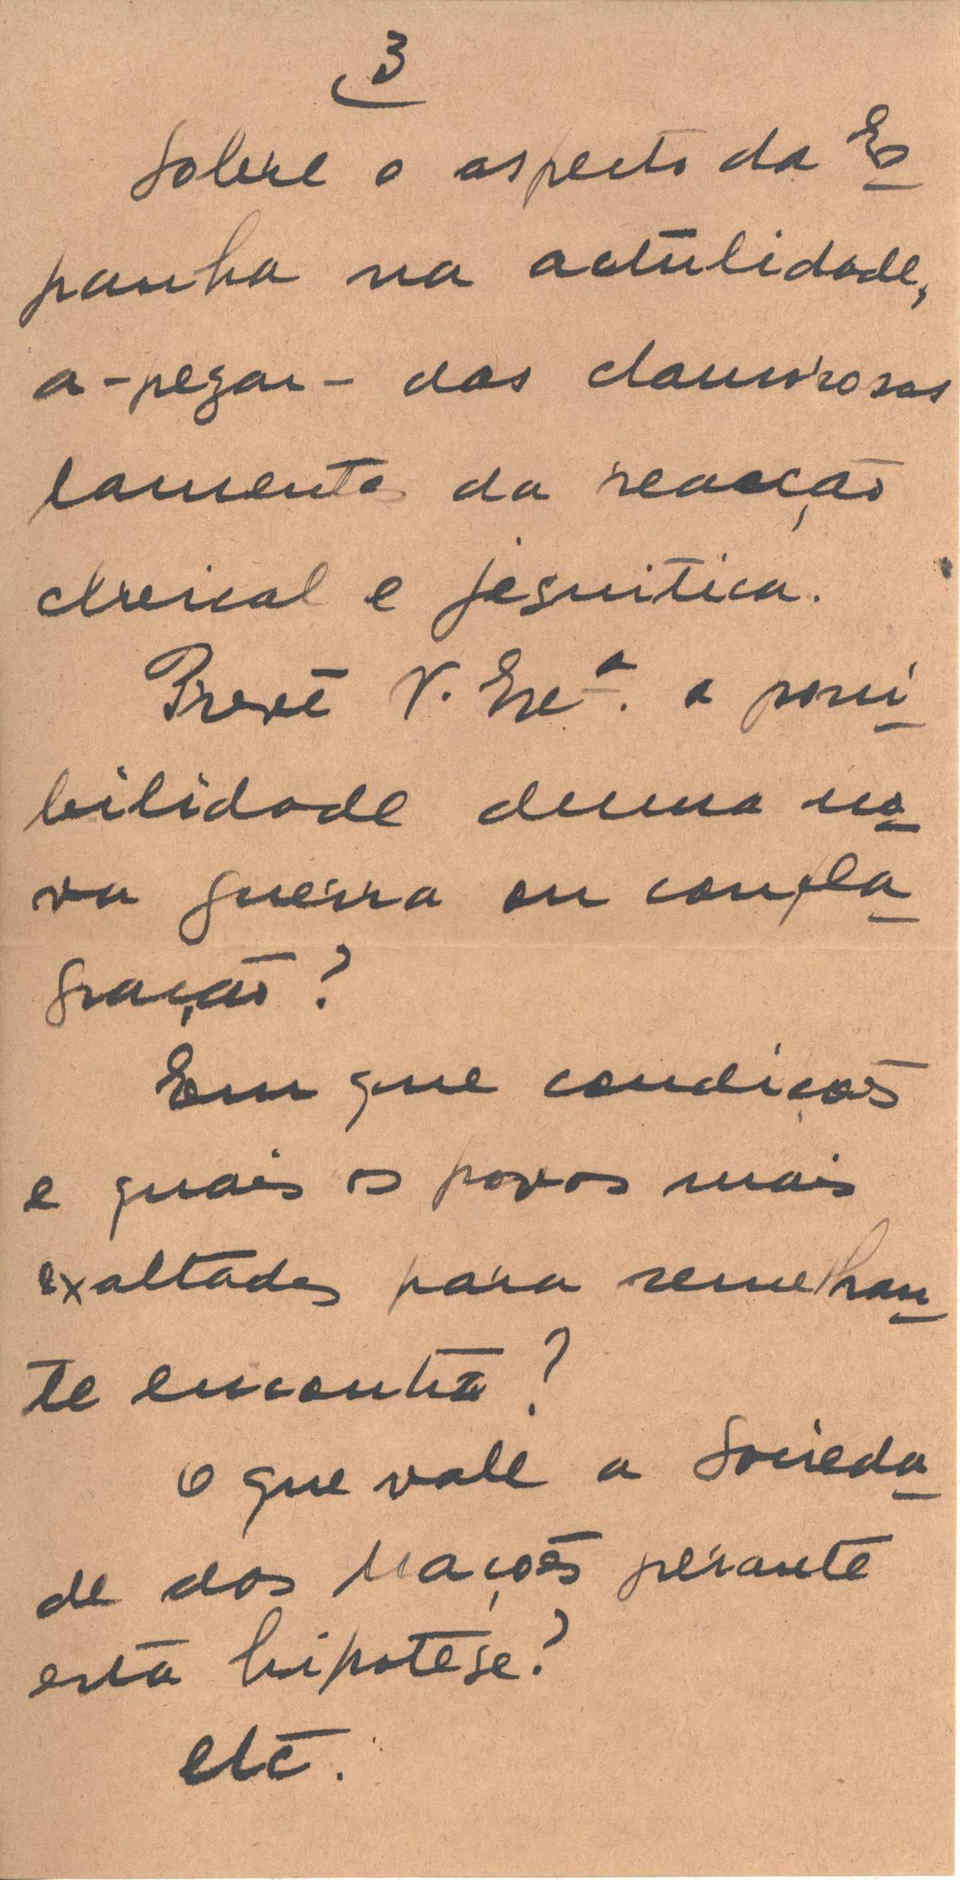 3
Sobre o aspecto da Es
panha na actulidade,
a-pezar-das clamorosas
lamentos da reacção
clreical e jesuitica.
Prevê V. Exª. a possi
bilidade duma no
va guerra ou confla
gração?
Em que condições
e quais os povos mais
exaltados para semelhan
te encontro?
O que vale a Socieda
de das Nações perante
esta hipotese?
etc.